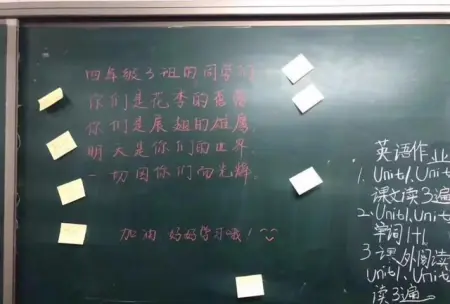 四年级3班的同学们
你们是花季的蓓蕾
你们是展翅的雄鹰,
明天是你们的世界
一切因你们而光辉,
加油 好好学习哦!
英语作业
1. Unit1, Unit
课文读3遍
2. Unit1, Unit
字词1+1
3 课外阅读
Unit1, Unit
读3遍